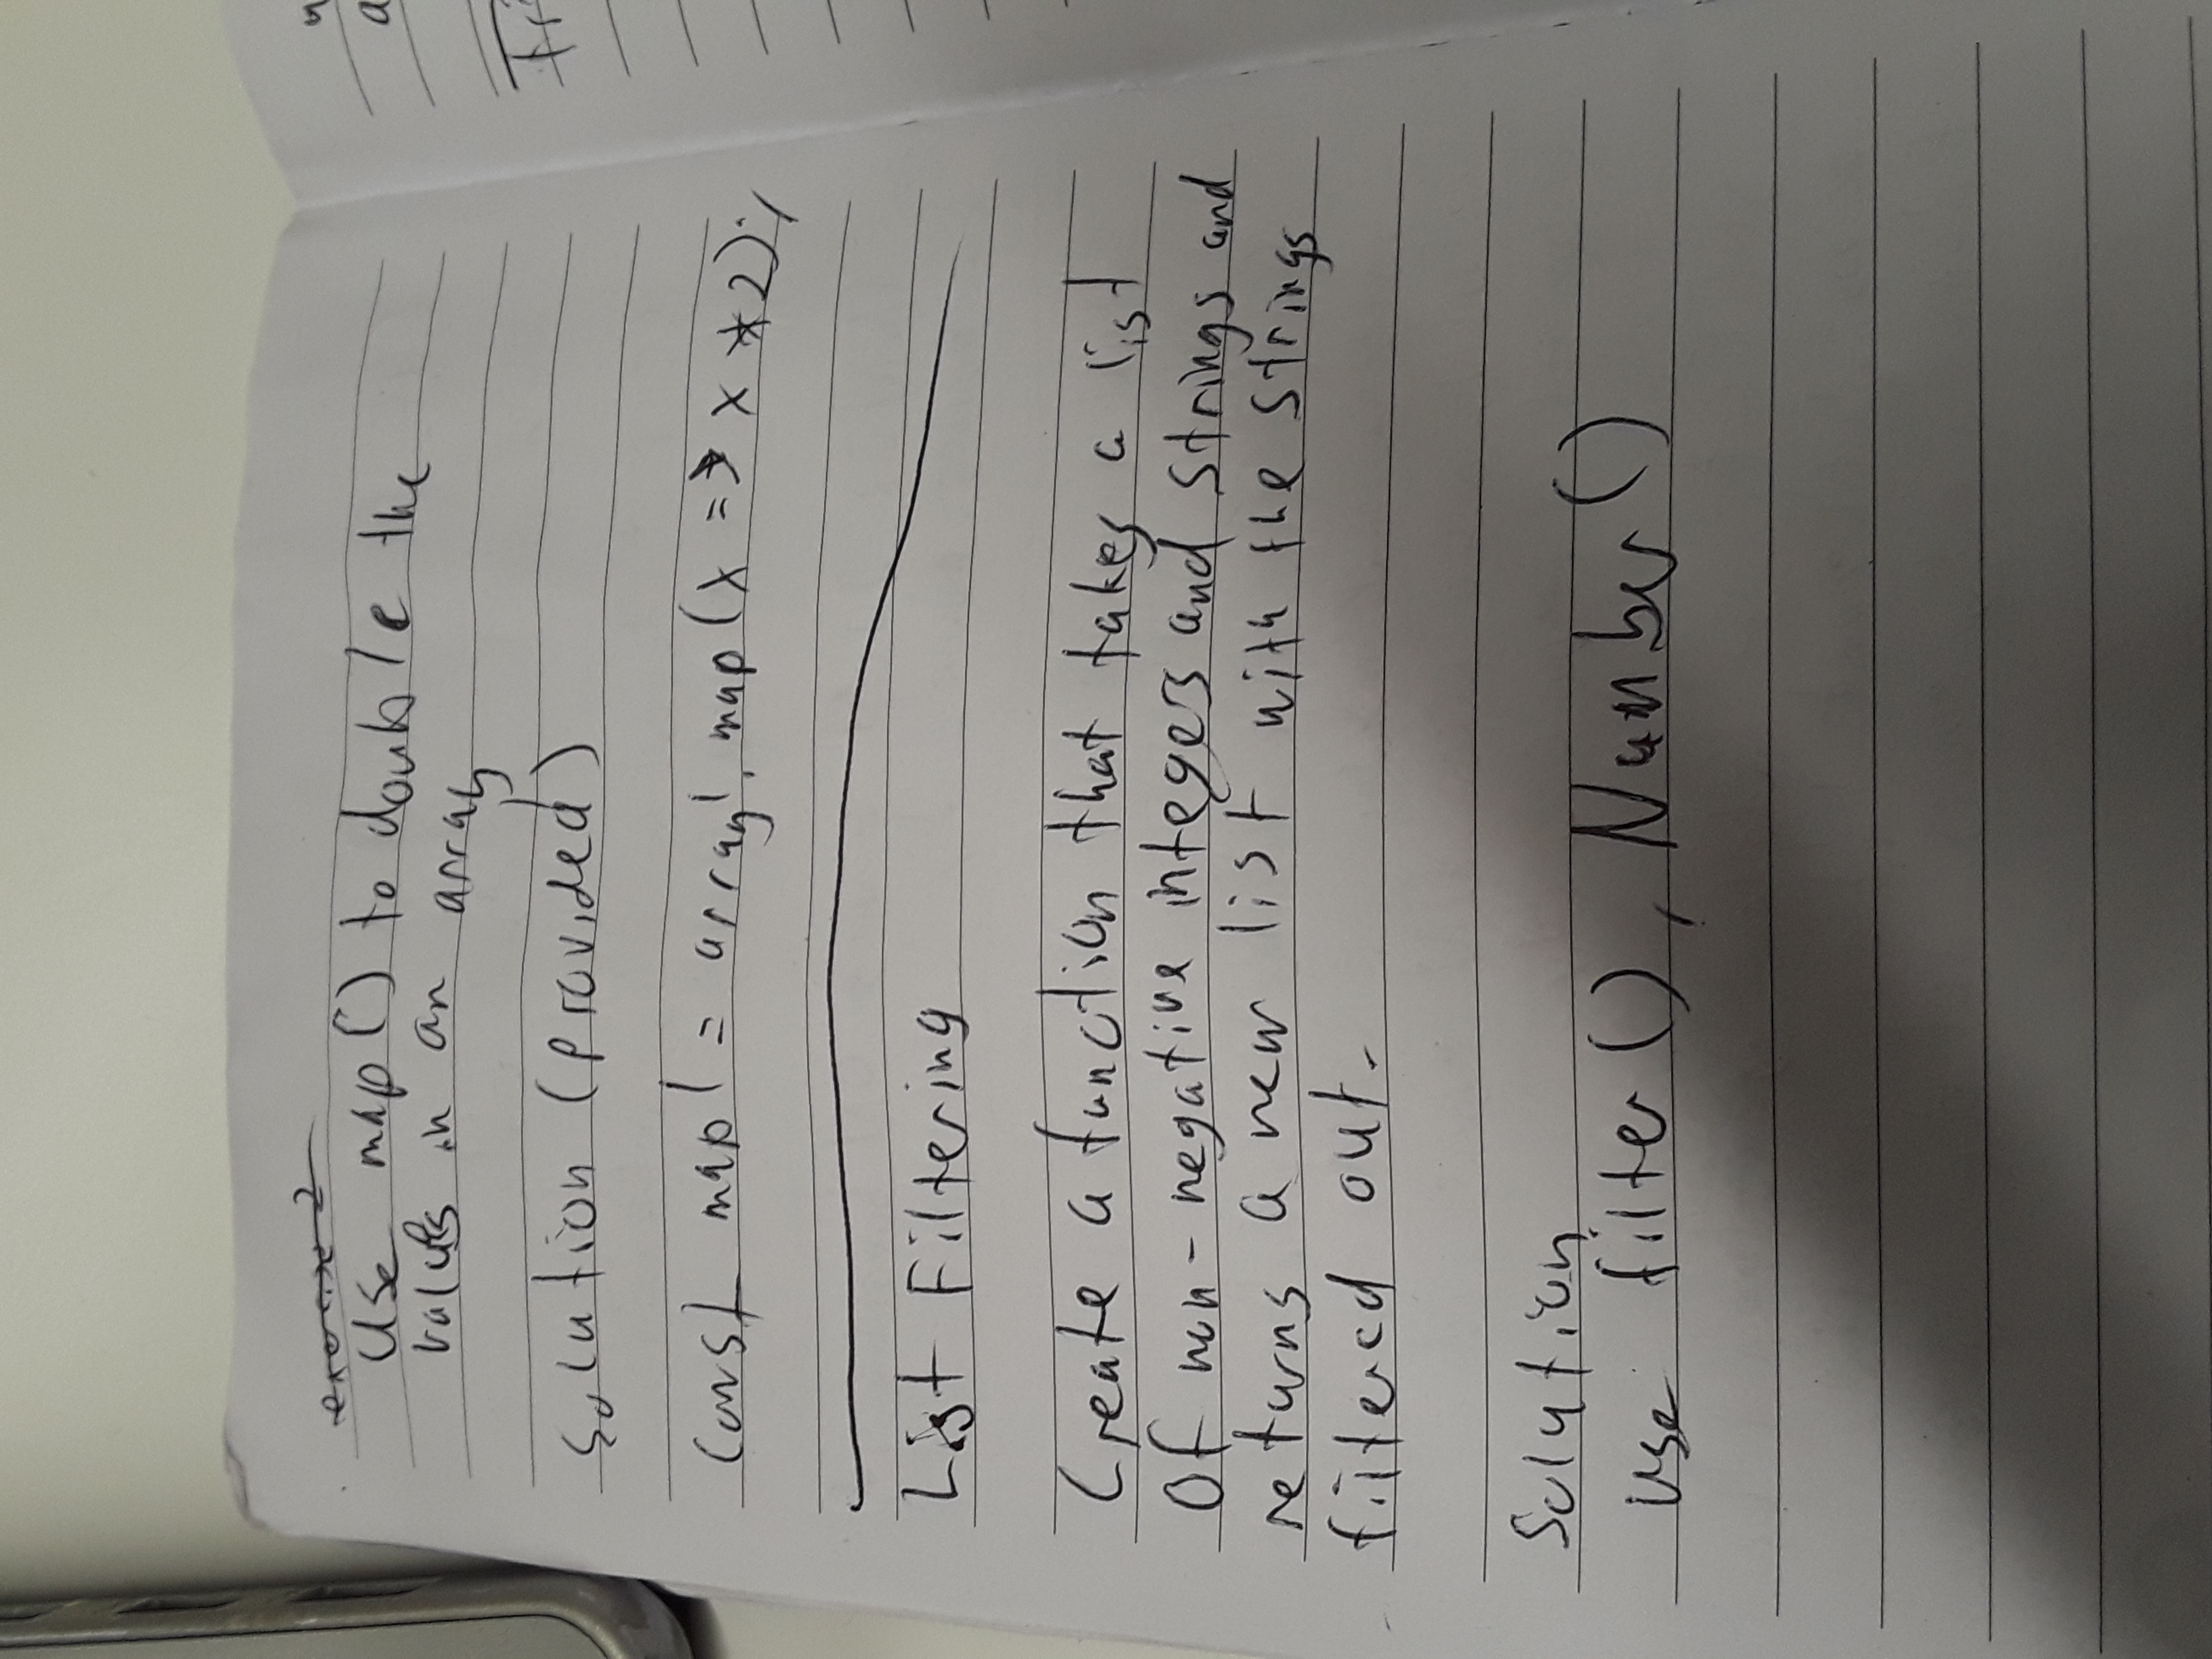 exercise 2
Use map() to double the
values in an array
Solution (provided)
const map1 = array1.map(x => x * 2);
List Filtering
Create a function that takes a list
Of non-negative integers and strings and
returns a new list with the strings
filtered out.
Solution
use filter(), Number()